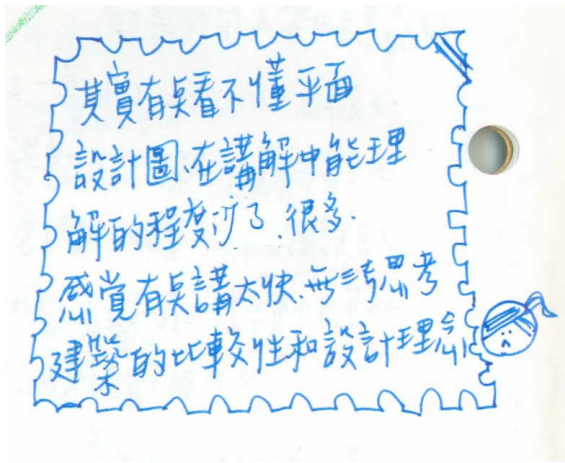 其實有点看不懂平面
設計圖、在講解中能理
解的程度少了、很多.
感覚有点講太快.無法思考
建築的比較性和設計理念